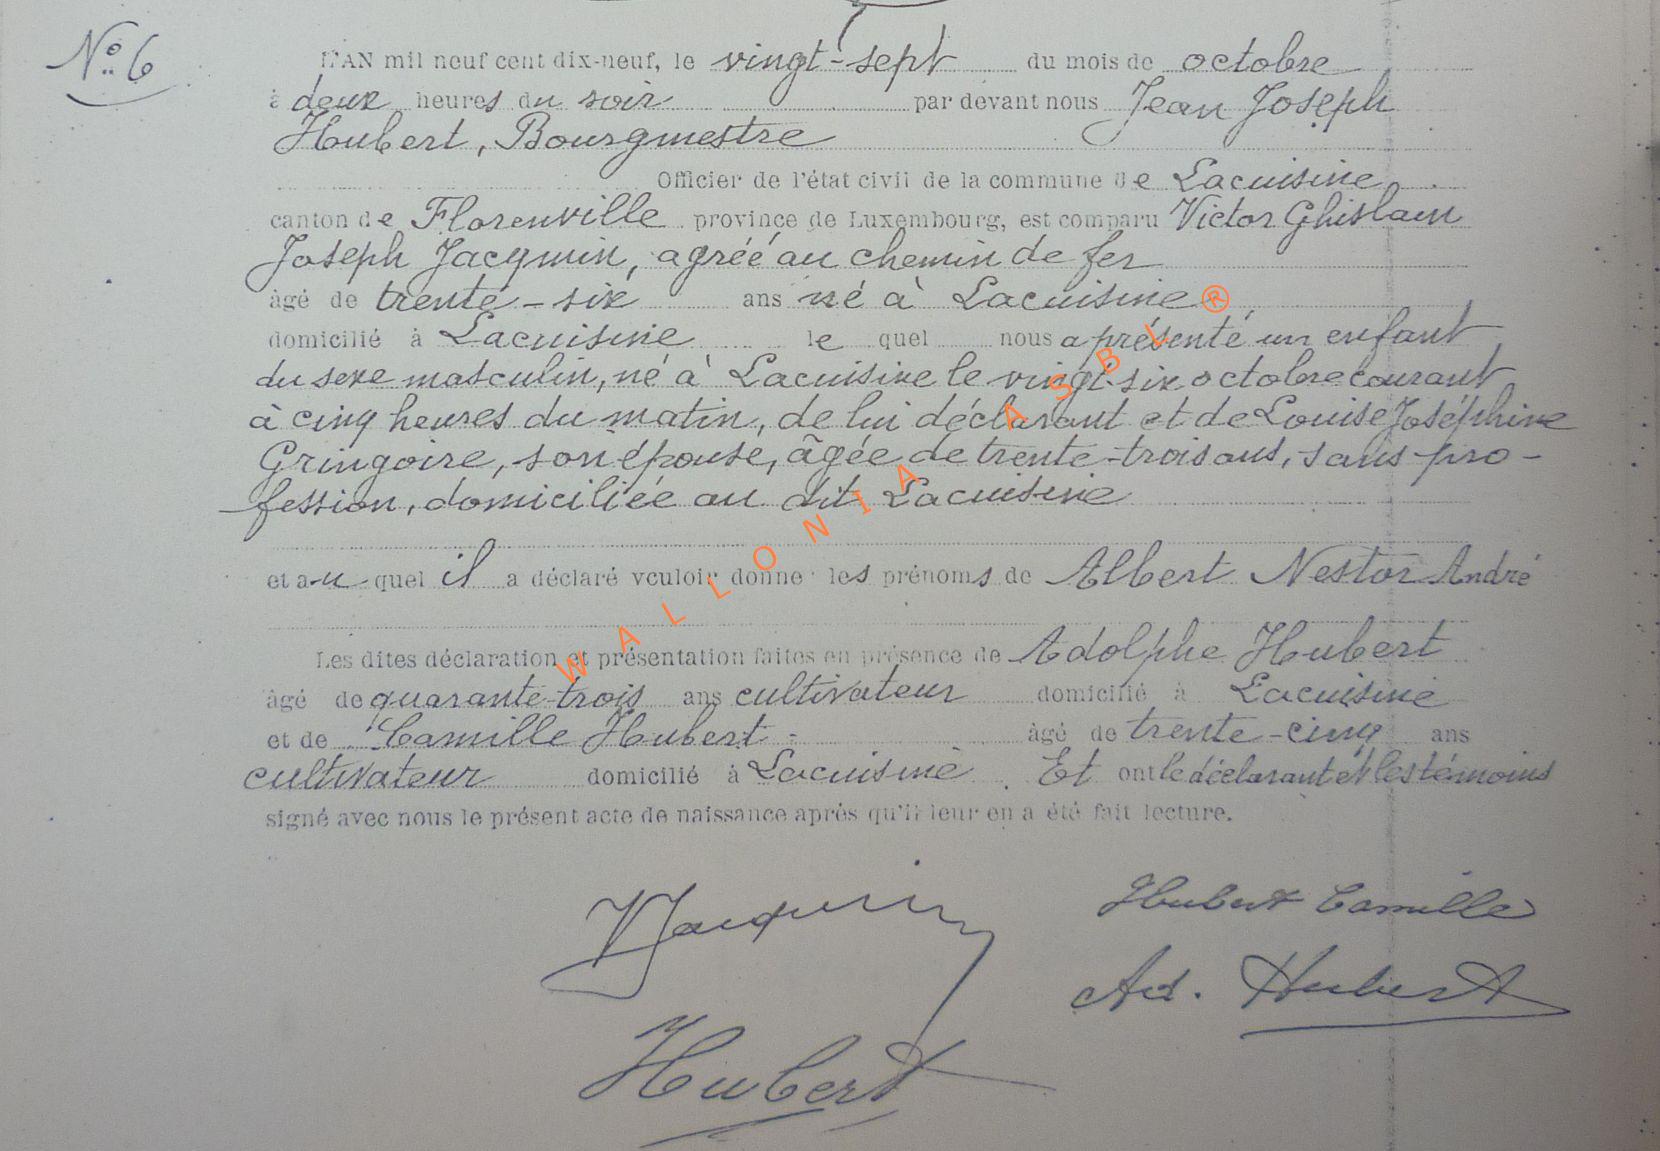 N° 6
L'AN mil neuf cent dix-neuf, le vingt-sept du mois de octobre
à deux heures du soir par devant nous Jean Joseph
Hubert, Bourgmestre
Officier de l'état civil de la commune de Lacuisine
canton de Florenville province de Luxembourg, est comparu Victor Ghislain
Joseph Jacqmin, agréé au chemin de fer
âgé de trente-six ans né à Lacuisine,
domicilié à Lacuisine le quel nous a présenté un enfant
du sexe masculin, né à Lacuisine le vingt-six octobre courant
à cinq heures du matin, de lui déclarant et de Louise Joséphine
Gringoire, son épouse, âgée de trente-trois ans, sans pro-
fession, domiciliée au dit Lacuisine
et au quel il a déclaré vouloir donner les prénoms de Albert Nestor André
Les dites déclaration et présentation faites en présence de Adolphe Hubert
âgé de quarante-trois ans cultivateur domicilié à Lacuisine
et de Camille Hubert âgé de trente-cinq ans
cultivateur domicilié à Lacuisine. Et ont le déclarant et les témoins
signé avec nous le présent acte de naissance après qu'il leur en a été fait lecture.
VJacqmin
Hubert Camille
Ad. Hubert
Hubert
WALLONIA ASBL ®